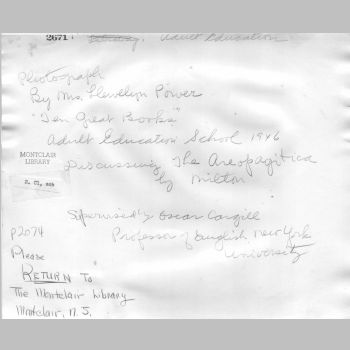 2671. Adult Education
Photograph
By Mrs. Llewelyn Power
"Ten Great Books"
Adult Education School 1946
Discussing The Areopagitica
by Milton
MONTCLAIR
LIBRARY
Supervised by Oscar Cargill
Professor of English New York
University
P2074
Please
RETURN To
The Montclair Library
Montclair, N.J.